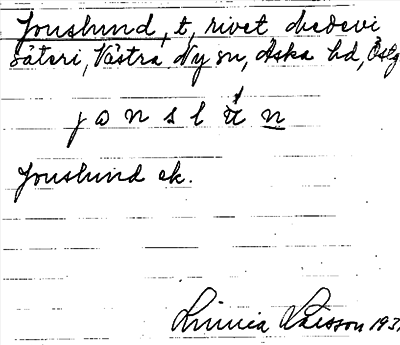 Jonslund, t, rivet Medevi
säteri, Västra Ny sn, Aska hd, Östg
j o n s l u n
Jonslund ek.
Linnea Larsson 193